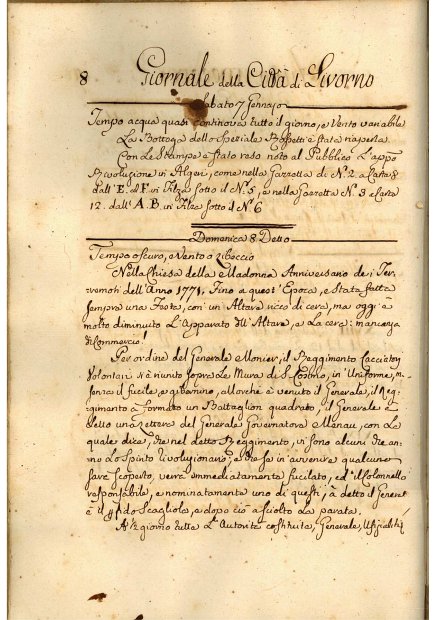 8 Giornale della Città di Livorno
Sabato 7 Gennajo
Tempo acqua quasi continova tutto il giorno, e Vento variabile
La Bottega dello Speziale Rossetti è stata riaperta
Con le Stampe è stato reso noto al Pubblico L'appo
Rivoluzione in Algeri, come nella Gazzetta di N.º 2. a Carta 8
dall' E. al F in Filza sotto il N.º 5, e nella Gazzetta N.º 3 a Carta
12. dall' A. B in Filza sotto il N.º 6
Domenica 8 Detto
Tempo oscuro, e Vento a libeccio
Nella Chiesa della Madonna Anniversario dei Ter-
remoti dell' Anno 1771. Fino a quest' Epoca, è stata fatta
sempre una Festa, con un' Altare ricco di cera, ma oggi è
molto diminuito L'Apparato all' Altare, e La cera: mancanza
di Commercio!
Per ordine del Generale Monier, il Reggimento Cacciatori
Volontari si è riunito sopra Le Mura di S. Cosimo, in Uniforme,
senza il fucile, e gibernino, allorchè è venuto il Generale, il Reg-
gimento à formato un Battaglion quadrato, il Generale à
Letto una Lettera del Generale Governatore Menau, con La
quale dice, che nel detto Reggimento, vi sono alcuni che an-
no Lo spirito rivoluzionario, e che se in avvenire qualcuno
fosse scoperto, verrà immediatamente fucilato, ed il Colonnello
responsabile, e nominatamente uno di questi, à detto il Generale
è il Scagliola, e dopo ciò à sciolto La parata.
A ½ giorno tutta L' Autorità costituita, Generale,